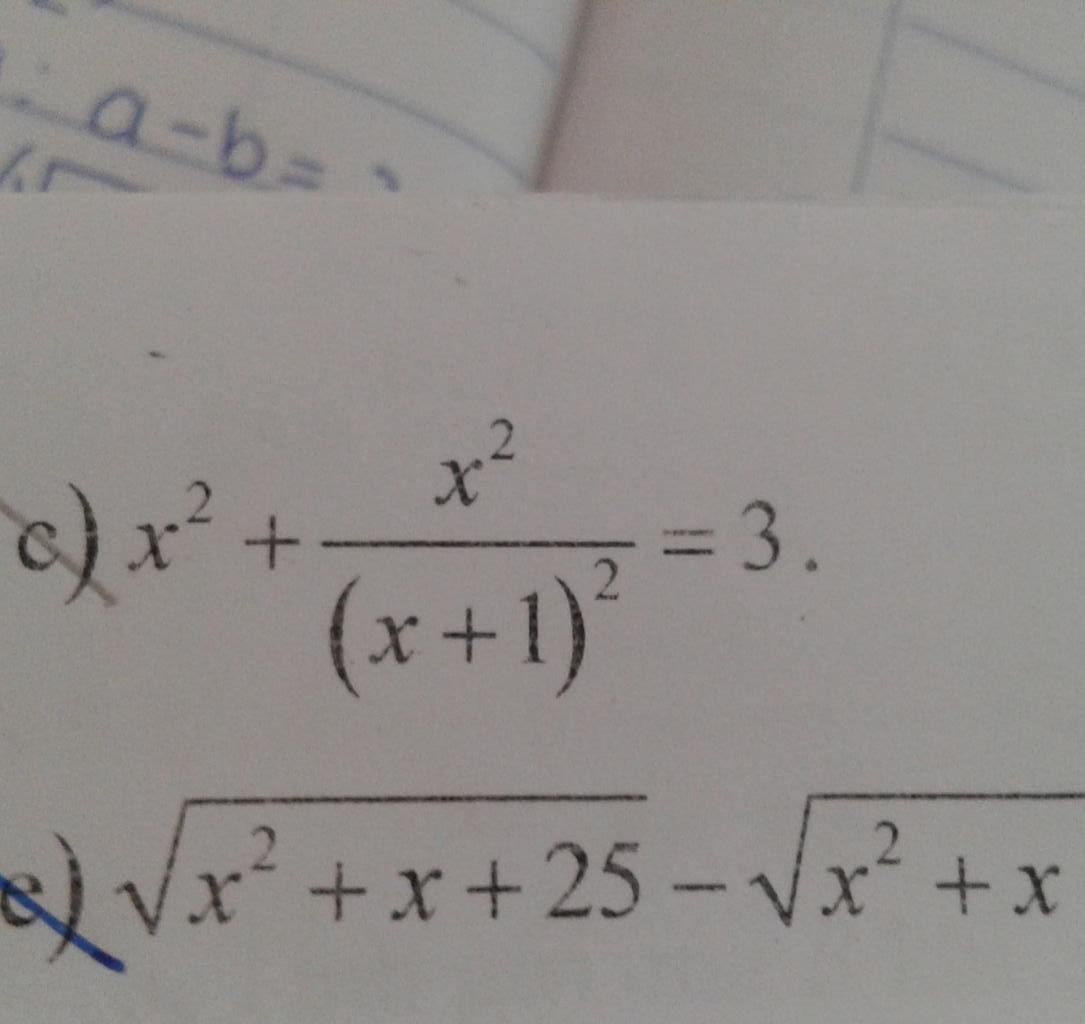 a-b=
c) x² + x²/(x+1)² = 3.
e) √(x² + x + 25) − √(x² + x